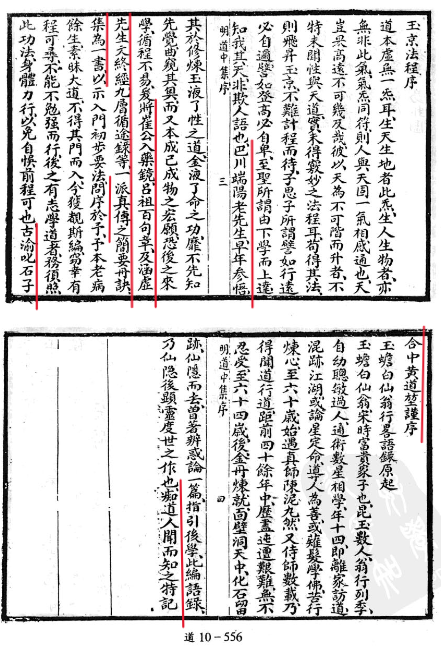 玉京法程序
道本虛無一炁耳生天生地者此炁生人生物者亦
無非此氣氣炁同得則人與天固一氣相感通也天
豈果高遠不可幾及哉彼以天為不可階而升者不
特未聞性與天道實未得數抄之法程耳苟得其法
則飛升玉京不離計程而待子思子所謂譬如行遠
必自邇譬如登高必自卑至聖所謂由下學而上達
知我其天非欺人語也巴川端陽老先生早年參悟
明道中集序 三
其於修煉玉液了性之道金液了命之功靡不先知
先覺西窺其奥而又本成己成物之宏願恐後之來
學循程不易爰將崔公入藥鏡呂祖百句章及涵虛
先生文終經九層循途錄等一派真傳之簡要丹訣
集為一書以示入門初步要法問序於予予本老病
餘生素昧大道不得其門而入今獲觀斯編竊幸有
程可尋不能不勉强而行後之有志學道者務須照
此功法身體力行以免自悞前程可也古渝叱石子
合中黄道堃謹序
玉蟾白仙翁行畧語錄原起
玉蟾白仙翁宋時富貴家子也昆玉數人翁行列季
自幼聰敏過人通術數星相學年十四即離家訪道
混跡江湖或論星定命道人為善或薙髮學佛苦行
煉心至六十歲始遇真師陳泥九然又侍師數載乃
得聞道行道距前四十餘年中歷盡迍邅艱難無不
忍受至六十四歲後金丹煉就面壁洞天中化石留
明道中集序 四
跡仙隱而去曾著辨惑論一篇指引後學此編語錄
乃仙隱後顯靈度世之作也痴道人聞而知之特記
道10－556